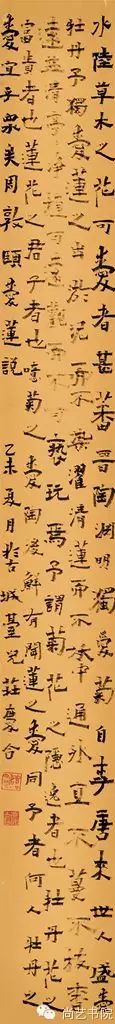 水陸草木之花可愛者甚蕃晉陶淵明獨愛菊自李唐來世人盛愛
牡丹予獨愛蓮之出於淤泥而不染濯清漣而不妖中通外直不蔓不枝香
遠益清亭亭淨植可遠觀而不可褻玩焉予謂菊花之隱逸者也牡丹花之
富貴者也蓮花之君子者也噫菊之愛陶後鮮有聞蓮之愛同予者何人牡丹之
愛宜乎眾矣周敦頤愛蓮說
乙未夏月於古城臺兒莊慶合
尚艺书院